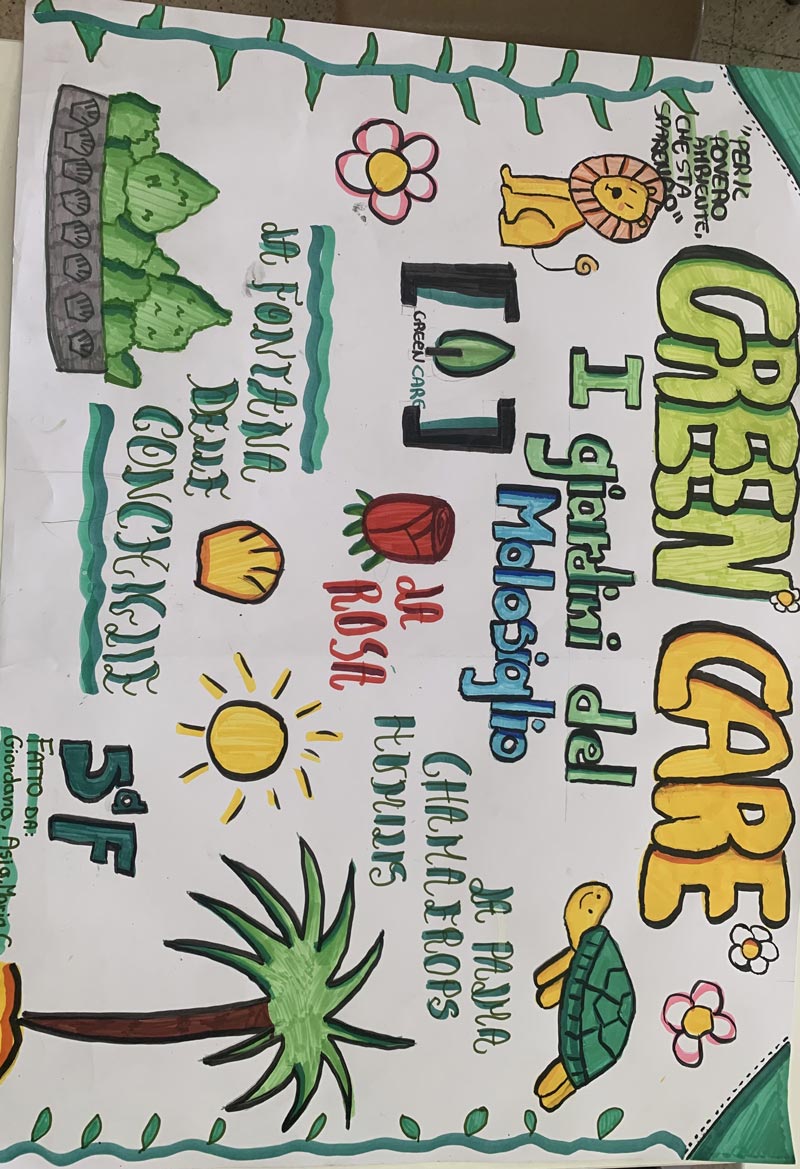 "PER IL
POVERO
AMBIENTE,
CHE STA
GREEN CARE
I giardini del
Molosiglio
GREEN CARE
LA FONTANA
DELLE
CONCHIGLIE
LA
ROSA
LA PALMA
CHAMAEROPS
HUMILIS
5ª F
FATTO DA:
Giordana, Asia, Maria